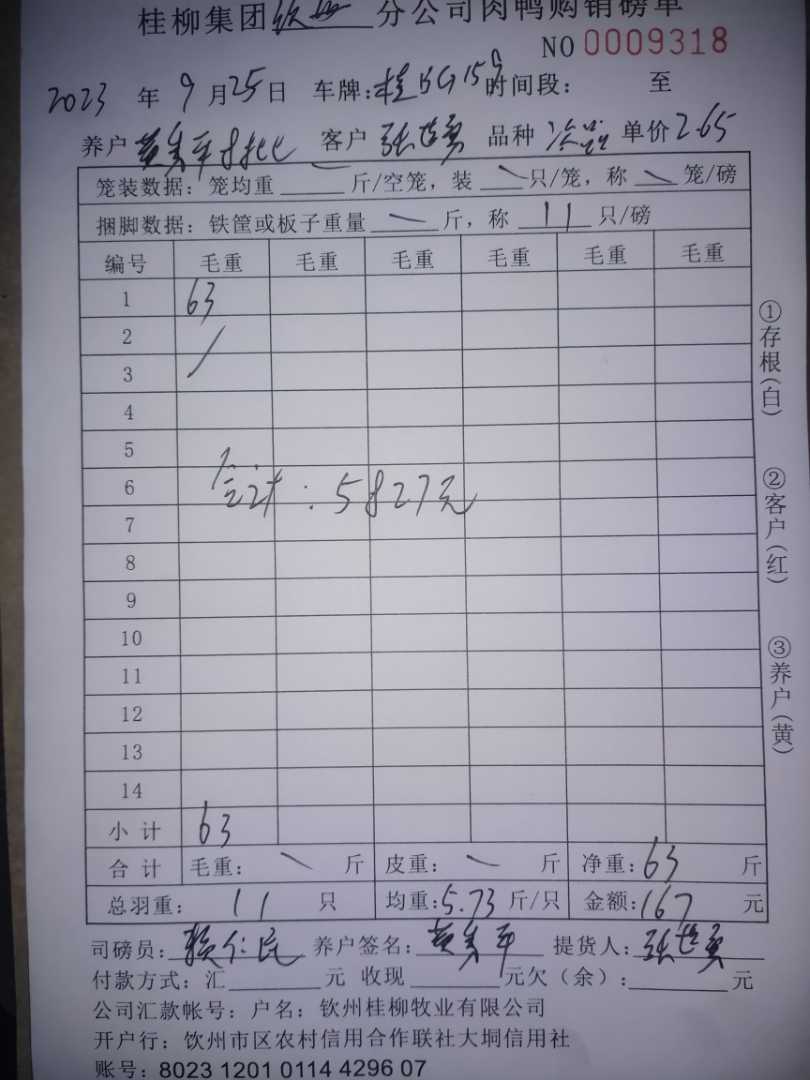 桂柳集团 钦州 分公司肉鸭购销磅单
NO 0009318
2023 年 9 月 25 日 车牌: 时间段: 至
养户 黄秀平 客户 张世勇 品种 单价 2.65
笼装数据: 笼均重 斤/空笼, 装 只/笼, 称 笼/磅
捆脚数据: 铁筐或板子重量 斤, 称 11 只/磅
编号 毛重 毛重 毛重 毛重 毛重 毛重
1 63
2
3
4
5
6 合计: 5827元
7
8
9
10
11
12
13
14
小计 63
合计 毛重: 斤 皮重: 斤 净重: 63 斤
总羽重: 11 只 均重: 5.73 斤/只 金额: 167 元
司磅员: 赖仁民 养户签名: 黄秀平 提货人: 张世勇
付款方式: 汇 元 收现 元欠(余): 元
公司汇款帐号: 户名: 钦州桂柳牧业有限公司
开户行: 钦州市区农村信用合作联社大垌信用社
账号: 8023 1201 0114 4296 07
①存根(白)
②客户(红)
③养户(黄)